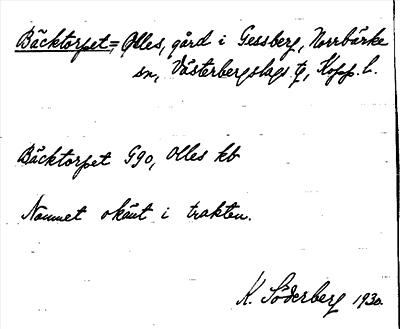 Bäcktorpet = Olles, gård i Gessberg, Norrbärke
sn, Västerbergslags tg, Kopp. l.
Bäcktorpet G90, Olles kb
Namnet okänt i trakten.
K. Söderberg 1930.